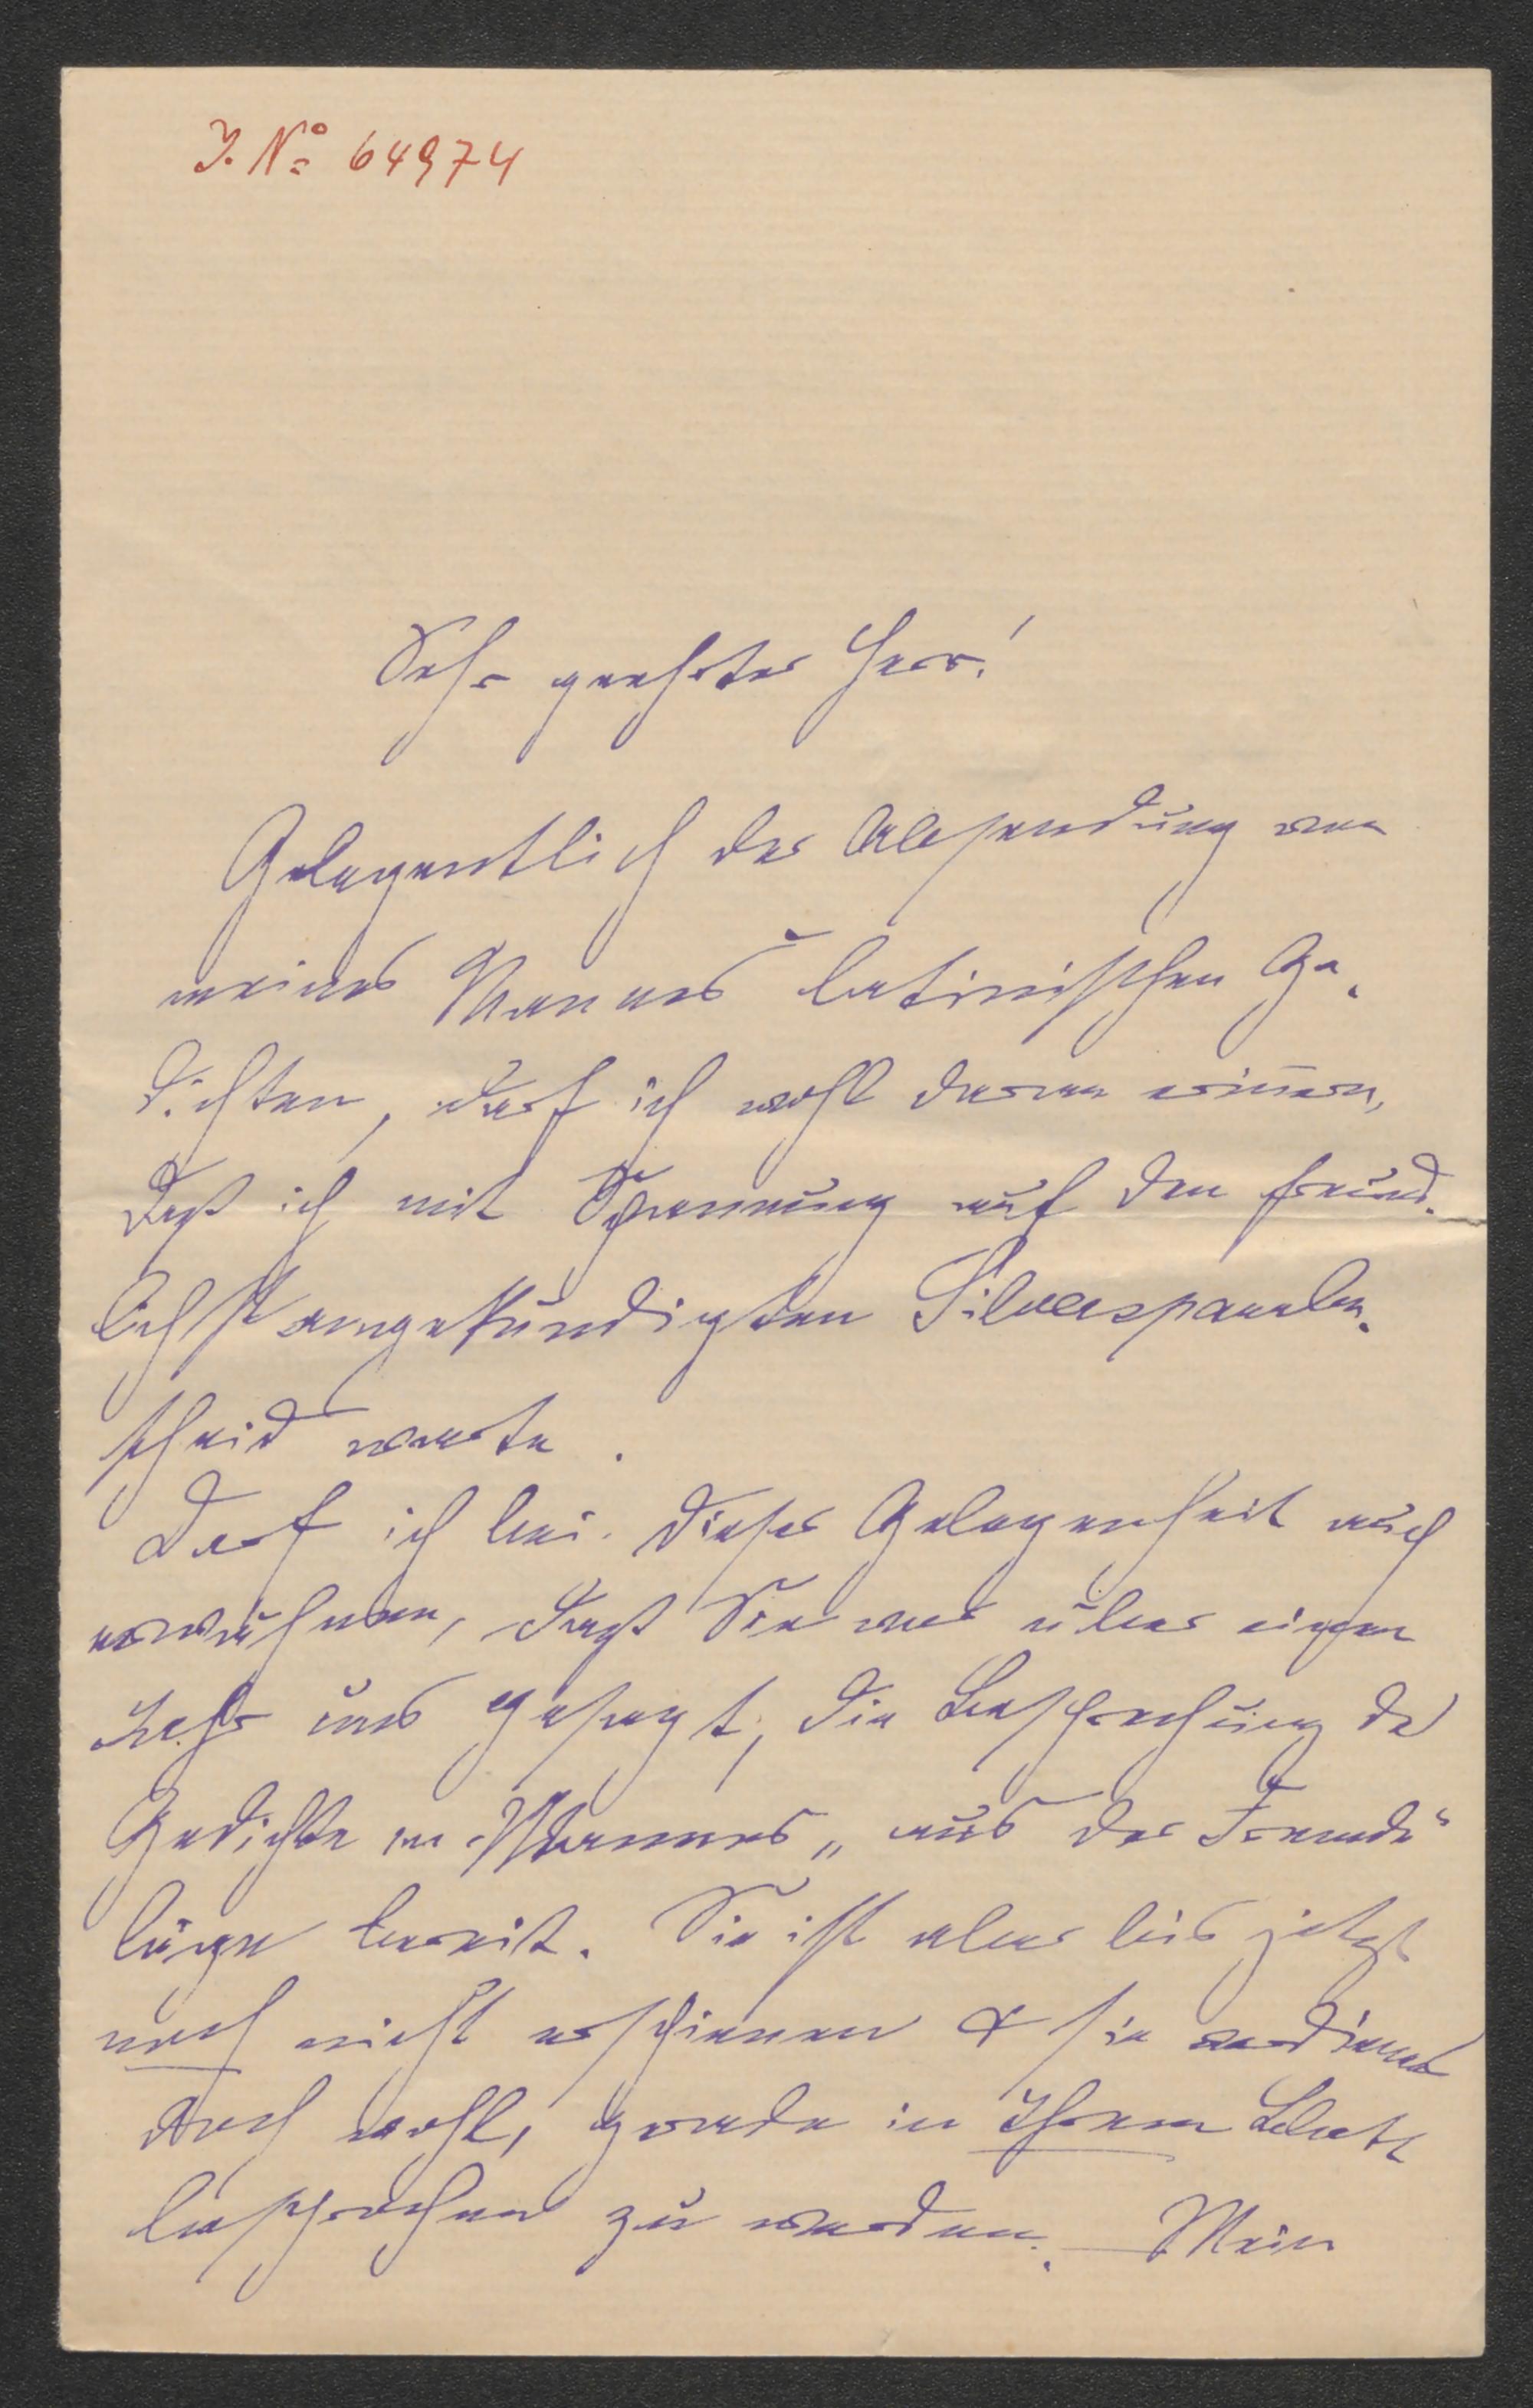 J. No 64974
Sehr geehrter Herr!
Gelegentlich der Absendung von
meines Mannes latinischen Ge-
dichten, darf ich wohl daran erinnern,
daß ich mit Spannung auf den freund-
lichst angekündigten
scheid warte.
Darf ich bei dieser Gelegenheit auch
erwähnen, daß Sie vor über einem
Jahr uns gesagt, die Besprechung der
Gedichte m Mannes „aus der Fremde“
läge bereit. Sie ist aber bis jetzt
noch nicht erschienen & sie verdient
doch wohl, gerade in Ihrem Blatt
besprochen zu werden. – Mein